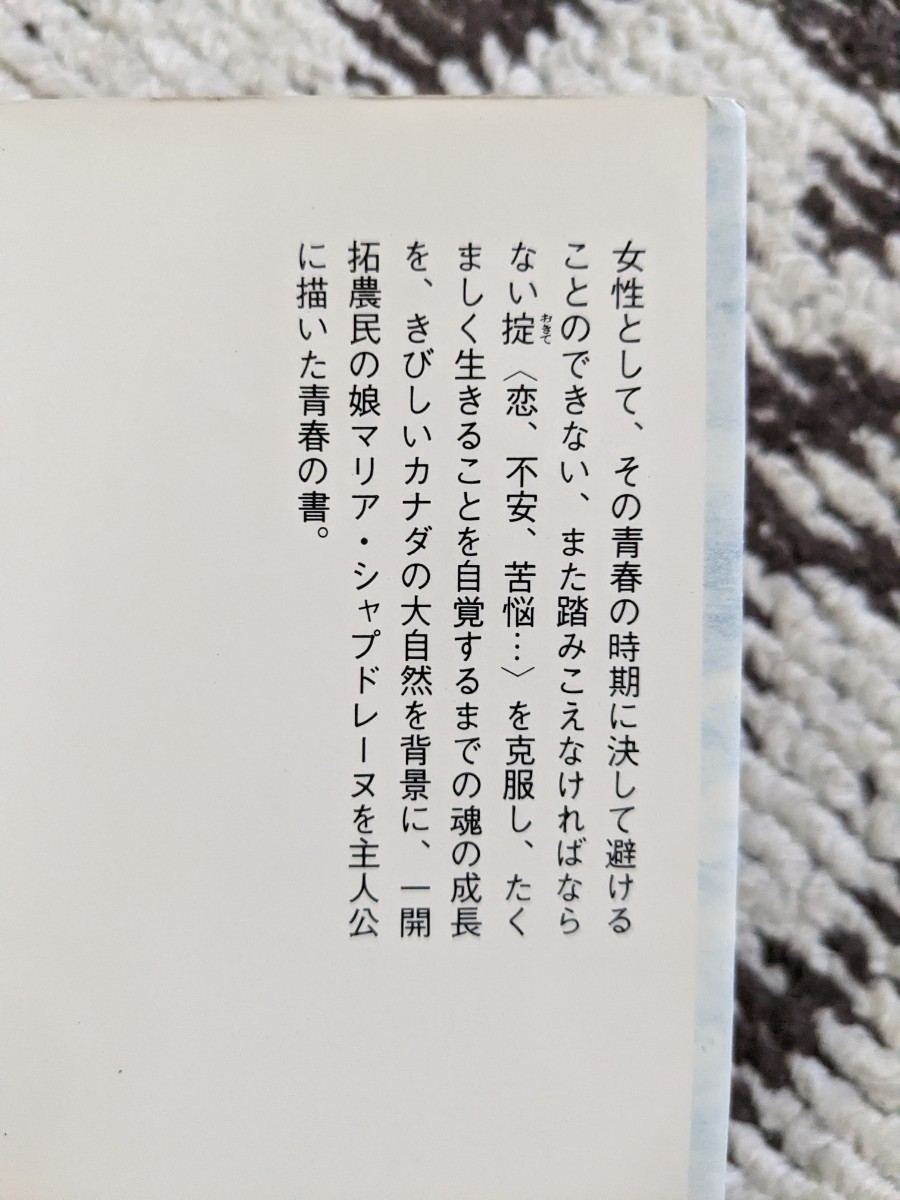 女性として、その青春の時期に決して避ける
ことのできない、また踏みこえなければなら
ない掟〈恋、不安、苦悩…〉を克服し、たく
おきて
ましく生きることを自覚するまでの魂の成長
を、きびしいカナダの大自然を背景に、一開
拓農民の娘マリア・シャプドレーヌを主人公
に描いた青春の書。